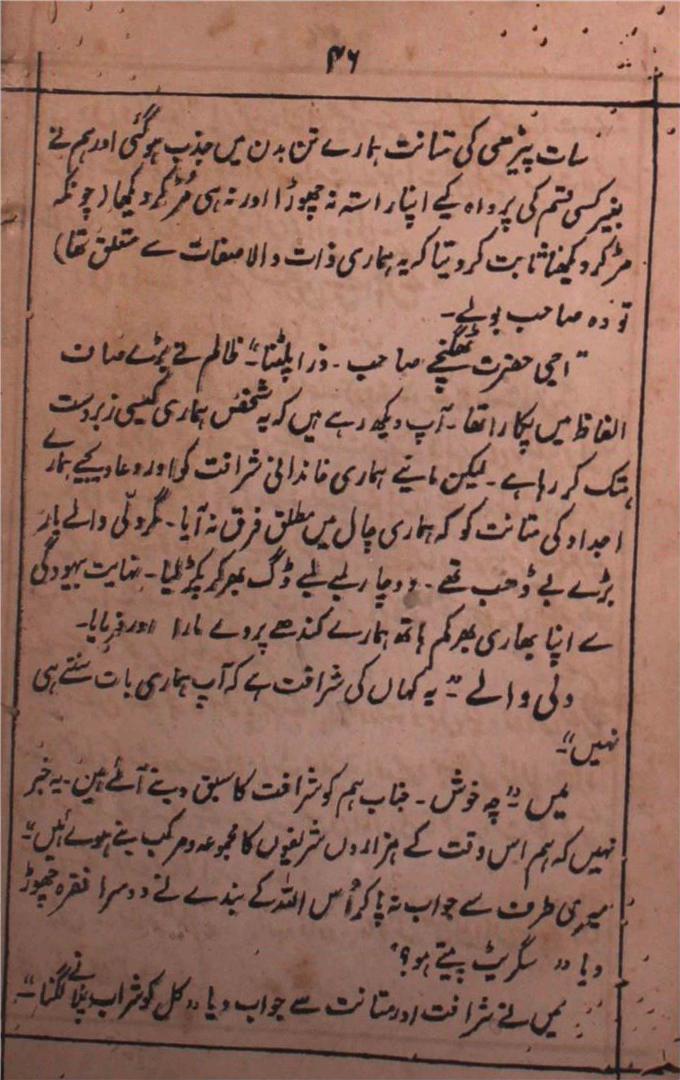 ۴۶
سات پیڑھی کی متانت ہمارے تن بدن میں جذب ہوگئی اور ہم نے
بغیر کسی قسم کی پرواہ کیے اپنا راستہ نہ چھوڑا اور نہ ہی مُڑ کر دیکھا (چونکہ
مڑ کر دیکھنا ثابت کر دیتا کہ یہ ہماری ذات والا صفات سے متعلق تھا)
تو وہ صاحب بولے۔
"اجی حضرت ٹھگنے صاحب ۔ ذرا پلٹنا"۔ ظالم نے بڑے صاف
الفاظ میں پکارا تھا ۔ آپ دیکھ رہے ہیں کہ یہ شخص ہماری کیسی زبردست
ہتک کر رہا ہے ۔ لیکن مانیے ہماری خاندانی شرافت کو اور دعا دیجیے ہمارے
اجداد کی متانت کو کہ ہماری چال میں مطلق فرق نہ آیا ۔ مگر دلّی والے یار
بڑے بے ڈھب تھے ۔ دو چار لمبے لمبے ڈگ بھر کر پکڑ لیا ۔ نہایت بیہودگی
سے اپنا بھاری بھرکم ہاتھ ہمارے کندھے پر دے مارا اور فرمایا۔
دلی والے :۔ "یہ کہاں کی شرافت ہے کہ آپ ہماری بات سُنتے ہی
نہیں"۔
میں :۔ "چہ خوش ۔ جناب ہم کو شرافت کا سبق دینے آئے ہیں ۔ یہ خبر
نہیں کہ ہم اس وقت کے ہزاروں شریفوں کا مجموعہ و مرکب بنے ہوئے ہیں"۔
میری طرف سے جواب نہ پا کر اُس اللہ کے بندے نے دوسرا فقرہ چھوڑ
دیا "سگریٹ پیتے ہو؟"
میں نے شرافت اور متانت سے جواب دیا "کل کو شراب پلانے لگنا"۔